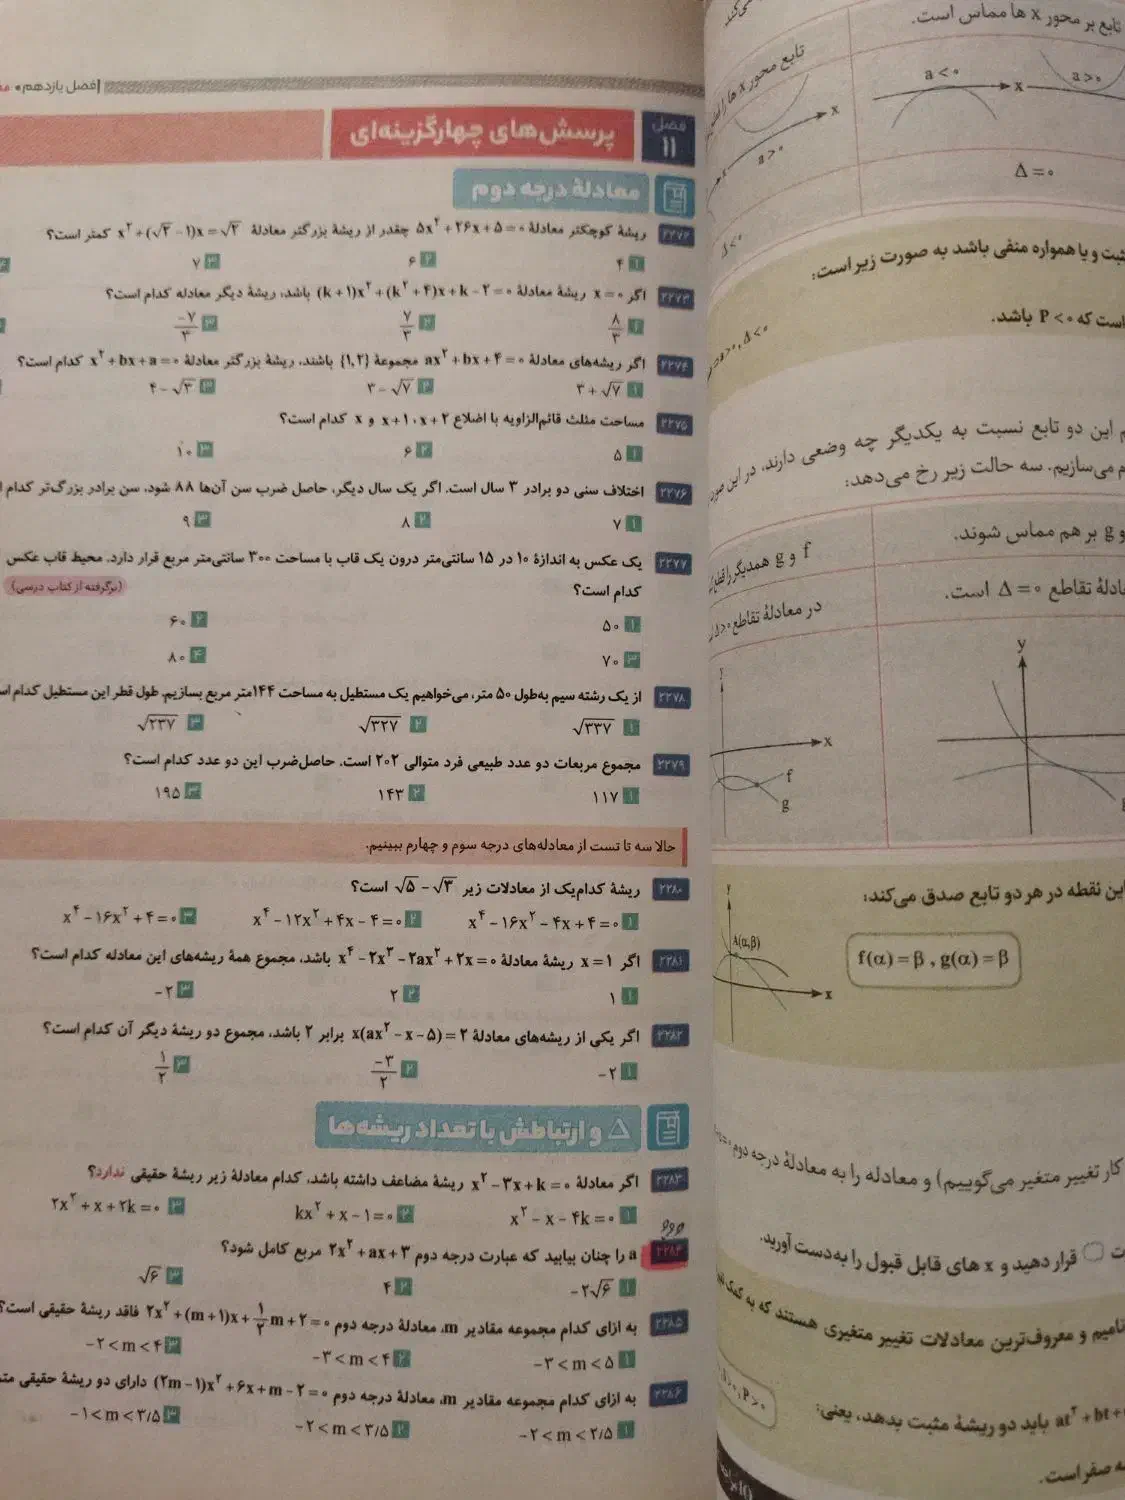 فصل یازدهم
فصل ۱۱
پرسش‌های چهارگزینه‌ای
معادلهٔ درجه دوم
۲۲۷۲ ریشهٔ کوچکتر معادلهٔ ۵x² + ۲۶x + ۵ = ۰ چقدر از ریشهٔ بزرگتر معادلهٔ x² + (√۳ − ۱)x = √۳ کمتر است؟
۱ ۴ ۲ ۶ ۳ ۷
۲۲۷۳ اگر x = ۰ ریشهٔ معادلهٔ (k + ۱)x² + (k² + ۴)x + k − ۲ = ۰ باشد، ریشهٔ دیگر معادله کدام است؟
۱ ۸/۳ ۲ ۷/۳ ۳ −۷/۳
۲۲۷۴ اگر ریشه‌های معادلهٔ ax² + bx + ۴ = ۰ مجموعهٔ {۱,۲} باشند، ریشهٔ بزرگتر معادلهٔ x² + bx + a = ۰ کدام است؟
۱ ۳ + √۷ ۲ ۳ − √۷ ۳ ۴ − √۳
۲۲۷۵ مساحت مثلث قائم‌الزاویه با اضلاع x + ۲، x + ۱ و x کدام است؟
۱ ۵ ۲ ۶ ۳ ۱۰
۲۲۷۶ اختلاف سنی دو برادر ۳ سال است. اگر یک سال دیگر، حاصل ضرب سن آن‌ها ۸۸ شود، سن برادر بزرگ‌تر کدام
۱ ۷ ۲ ۸ ۳ ۹
۲۲۷۷ یک عکس به اندازهٔ ۱۰ در ۱۵ سانتی‌متر درون یک قاب با مساحت ۳۰۰ سانتی‌متر مربع قرار دارد. محیط قاب عکس
کدام است؟ (برگرفته از کتاب درسی)
۱ ۵۰ ۲ ۶۰
۳ ۷۰ ۴ ۸۰
۲۲۷۸ از یک رشته سیم به‌طول ۵۰ متر، می‌خواهیم یک مستطیل به مساحت ۱۴۴ متر مربع بسازیم. طول قطر این مستطیل کدام
۱ √۳۳۷ ۲ √۳۲۷ ۳ √۲۳۷
۲۲۷۹ مجموع مربعات دو عدد طبیعی فرد متوالی ۲۰۲ است. حاصل‌ضرب این دو عدد کدام است؟
۱ ۱۱۷ ۲ ۱۴۳ ۳ ۱۹۵
حالا سه تا تست از معادله‌های درجه سوم و چهارم ببینیم.
۲۲۸۰ ریشهٔ کدام‌یک از معادلات زیر √۵ − √۳ است؟
۱ x⁴ − ۱۶x² − ۴x + ۴ = ۰ ۲ x⁴ − ۱۲x² + ۴x − ۴ = ۰ ۳ x⁴ − ۱۶x² + ۴ = ۰
۲۲۸۱ اگر x = ۱ ریشهٔ معادلهٔ x⁴ − ۲x³ − ۲ax² + ۲x = ۰ باشد، مجموع همهٔ ریشه‌های این معادله کدام است؟
۱ ۱ ۲ ۲ ۳ −۲
۲۲۸۲ اگر یکی از ریشه‌های معادلهٔ x(ax² − x − ۵) = ۲ برابر ۲ باشد، مجموع دو ریشهٔ دیگر آن کدام است؟
۱ −۲ ۲ −۳/۲ ۳ ۱/۲
Δ و ارتباطش با تعداد ریشه‌ها
۲۲۸۳ اگر معادلهٔ x² − ۳x + k = ۰ ریشهٔ مضاعف داشته باشد، کدام معادلهٔ زیر ریشهٔ حقیقی ندارد؟
۱ x² − x − ۴k = ۰ ۲ kx² + x − ۱ = ۰ ۳ ۲x² + x + ۲k = ۰
۲۲۸۴ a را چنان بیابید که عبارت درجه دوم ۲x² + ax + ۳ مربع کامل شود؟
۱ −۲√۶ ۲ ۴ ۳ √۶
۲۲۸۵ به ازای کدام مجموعه مقادیر m، معادلهٔ درجه دوم ۲x² + (m + ۱)x + ۱/۲ m + ۲ = ۰ فاقد ریشهٔ حقیقی است؟
۱ −۳ < m < ۵ ۲ −۳ < m < ۴ ۳ −۲ < m < ۴
۲۲۸۶ به ازای کدام مجموعه مقادیر m، معادلهٔ درجه دوم (۲m − ۱)x² + ۶x + m − ۲ = ۰ دارای دو ریشهٔ حقیقی
۱ −۲ < m < ۲/۵ ۲ −۲ < m < ۳/۵ ۳ −۱ < m < ۳/۵
تابع بر محور x ها مماس است.
تابع محور x ها را
a < ۰ x a > ۰
a > ۰ x
Δ = ۰
Δ < ۰
ثبت و یا همواره منفی باشد به صورت زیر است:
است که P < ۰ باشد.
a > ۰, Δ < ۰
م این دو تابع نسبت به یکدیگر چه وضعی دارند، در این
م می‌سازیم. سه حالت زیر رخ می‌دهد:
و g بر هم مماس شوند.
f و g همدیگر را
معادلهٔ تقاطع Δ = ۰ است.
در معادلهٔ تقاطع Δ > ۰
y
x
f
g
این نقطه در هر دو تابع صدق می‌کند:
y
A(α,β)
x
f(α) = β , g(α) = β
کار تغییر متغیر می‌گوییم) و معادله را به معادلهٔ درجه دوم
قرار دهید و x های قابل قبول را به‌دست آورید.
نامیم و معروف‌ترین معادلات تغییر متغیری هستند که به کمک
at² + bt + باید دو ریشهٔ مثبت بدهد، یعنی:
P > ۰
صفر است.